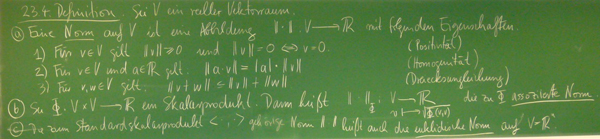 23.4. Definition. Sei V ein reeller Vektorraum.
(a) Eine Norm auf V ist eine Abbildung ‖·‖: V → ℝ mit folgenden Eigenschaften.
1) Für v∈V gilt ‖v‖ ⩾ 0 und ‖v‖ = 0 ⇔ v = 0. (Positivität)
2) Für v∈V und a∈ℝ gilt: ‖a·v‖ = |a|·‖v‖ (Homogenität)
3) Für v,w∈V gilt: ‖v+w‖ ≤ ‖v‖ + ‖w‖ (Dreiecksungleichung)
(b) Sei Φ: V×V → ℝ ein Skalarprodukt. Dann heißt ‖·‖_Φ: V → ℝ die zu Φ assoziierte Norm.
v ↦ √Φ(v,v)
(c) Die zum Standardskalarprodukt <·,·> gehörige Norm ‖ ‖ heißt auch die euklidische Norm auf V = ℝⁿ